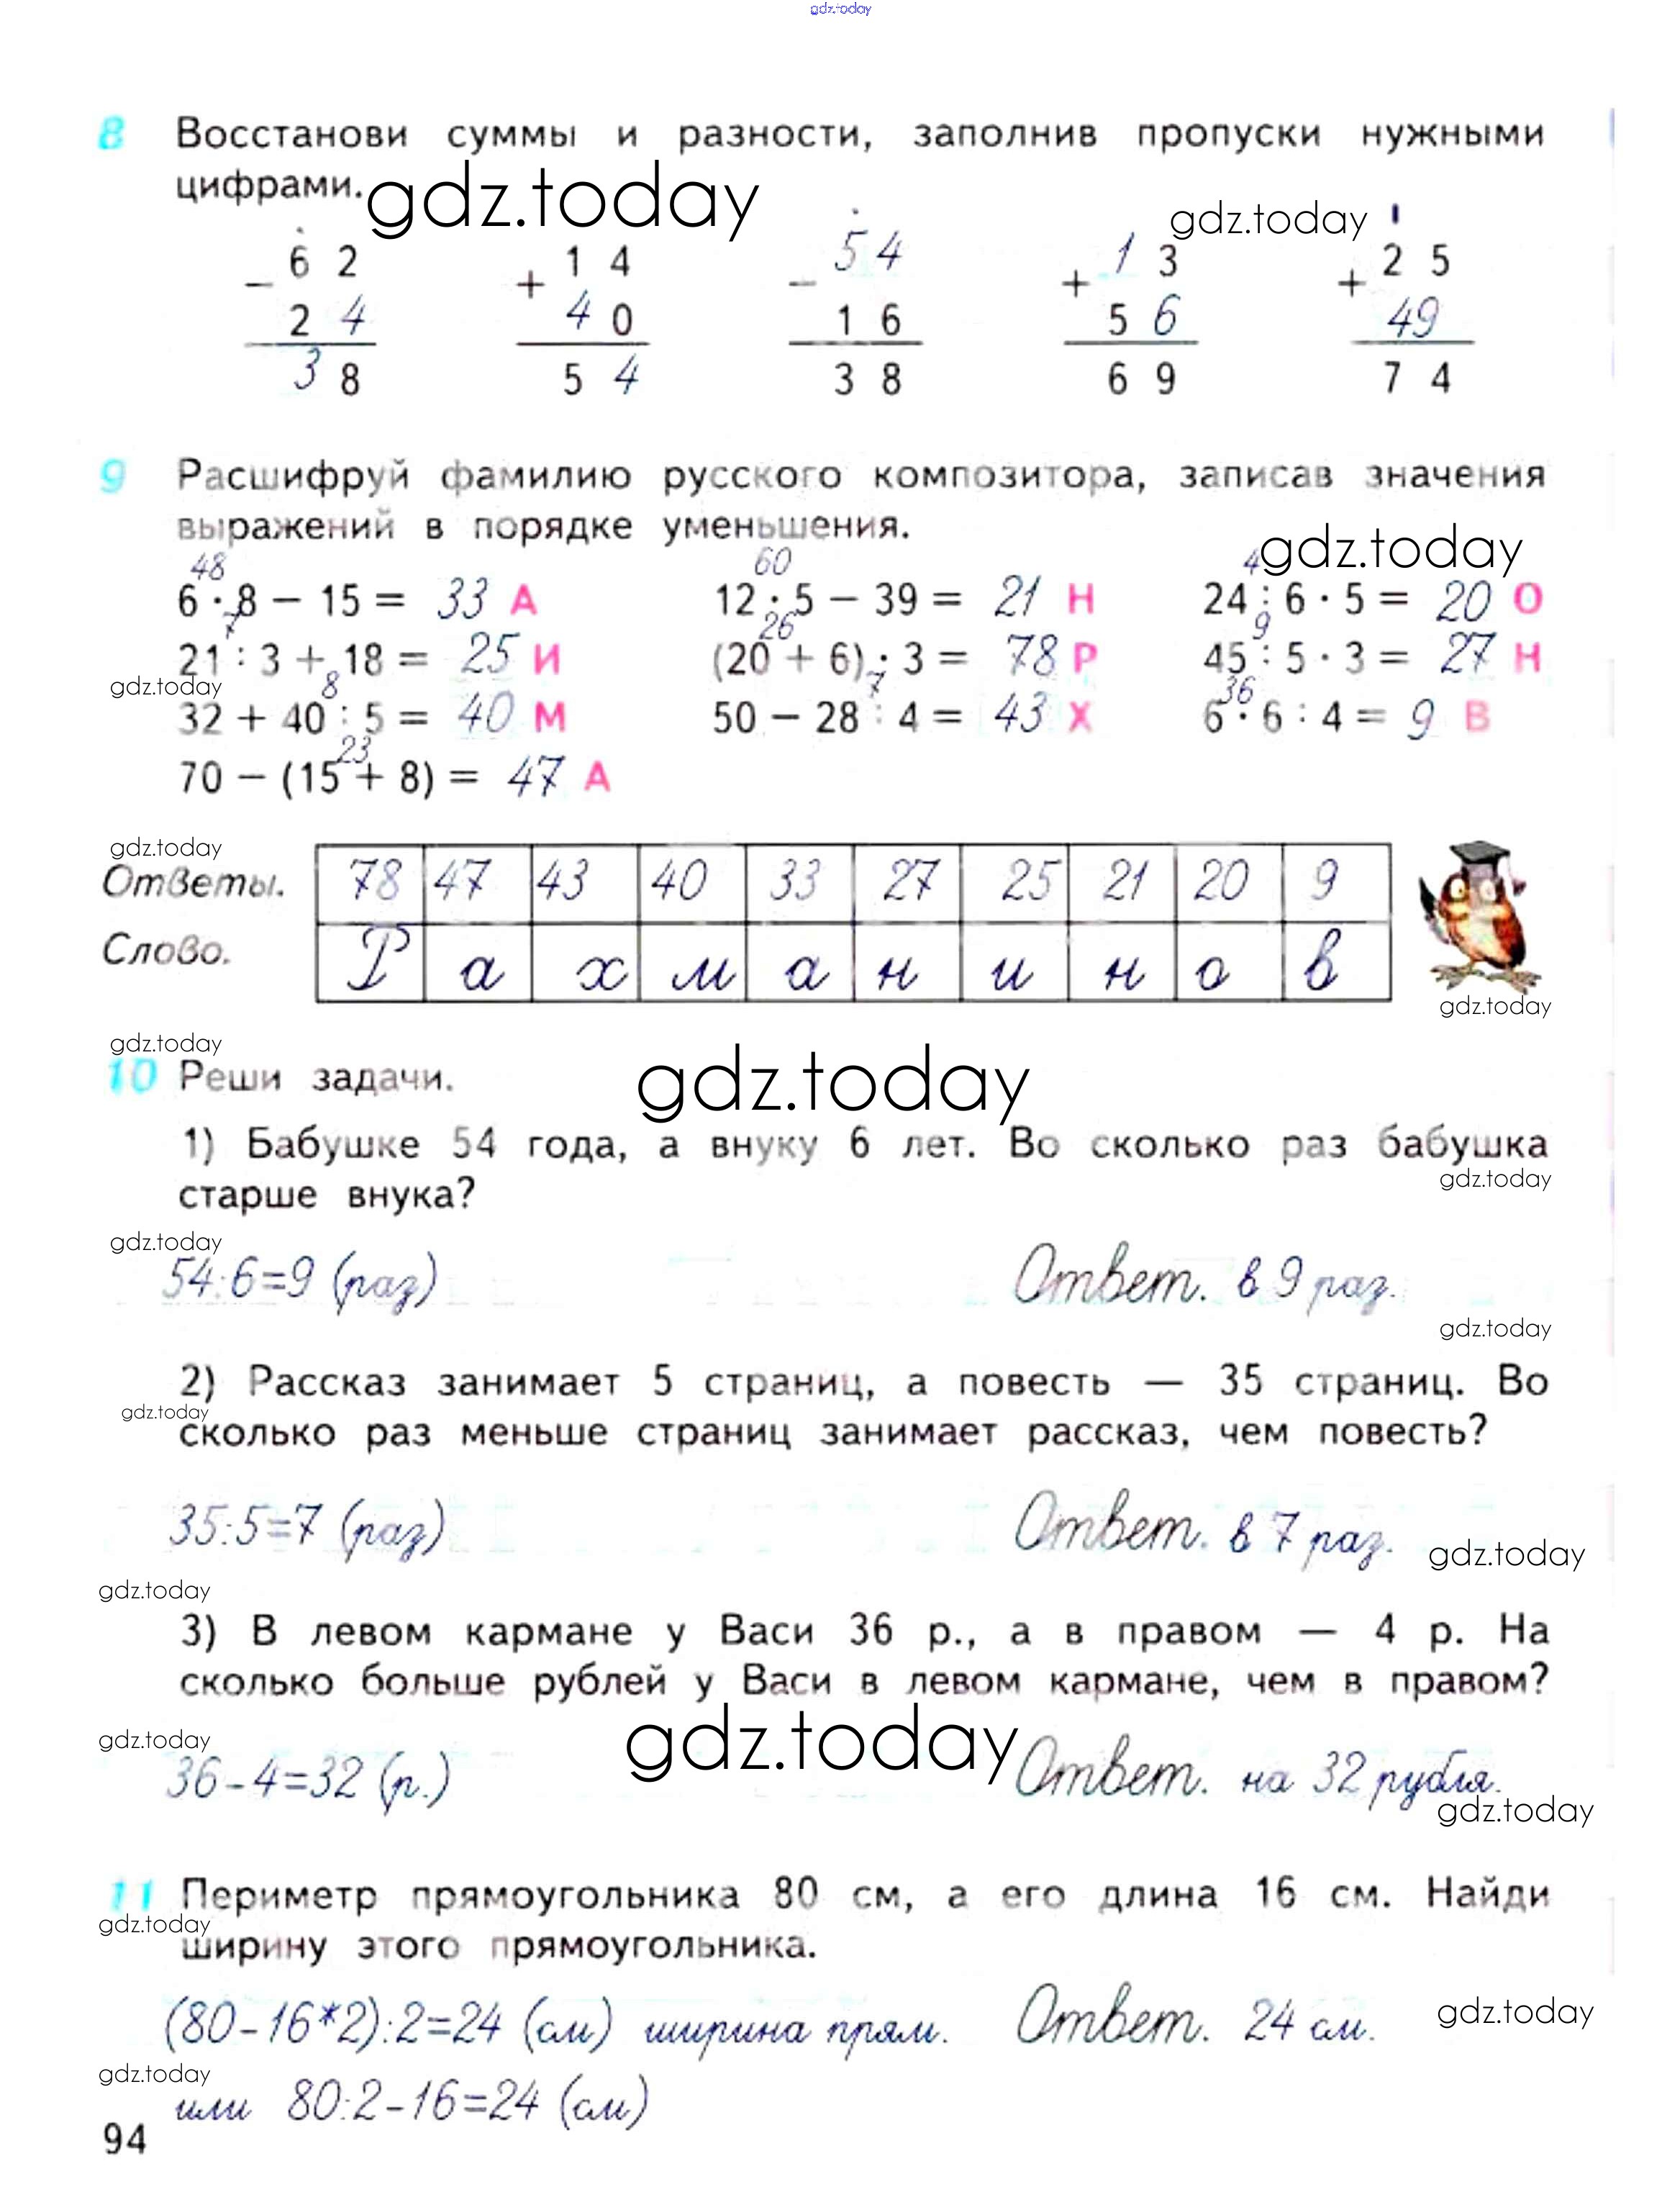 gdz.today
8 Восстанови суммы и разности, заполнив пропуски нужными
цифрами. gdz.today gdz.today
6 2 1 4 5 4 1 3 2 5
− + − + +
2 4 4 0 1 6 5 6 49
3 8 5 4 3 8 6 9 7 4
9 Расшифруй фамилию русского композитора, записав значения
выражений в порядке уменьшения.
48 60 4 gdz.today
6 · 8 − 15 = 33 А 12 · 5 − 39 = 21 Н 24 : 6 · 5 = 20 О
7 26 9
21 : 3 + 18 = 25 И (20 + 6) · 3 = 78 Р 45 : 5 · 3 = 27 Н
gdz.today 8 7 36
32 + 40 : 5 = 40 М 50 − 28 : 4 = 43 Х 6 · 6 : 4 = 9 В
23
70 − (15 + 8) = 47 А
gdz.today
Ответы. 78 47 43 40 33 27 25 21 20 9
Слово. Р а х м а н и н о в
gdz.today
gdz.today
10 Реши задачи. gdz.today
1) Бабушке 54 года, а внуку 6 лет. Во сколько раз бабушка
gdz.today
старше внука?
gdz.today
54:6=9 (раз) Ответ. в 9 раз.
gdz.today
2) Рассказ занимает 5 страниц, а повесть — 35 страниц. Во
gdz.today
сколько раз меньше страниц занимает рассказ, чем повесть?
35:5=7 (раз) Ответ. в 7 раз. gdz.today
gdz.today
3) В левом кармане у Васи 36 р., а в правом — 4 р. На
сколько больше рублей у Васи в левом кармане, чем в правом?
gdz.today gdz.today
36-4=32 (р.) Ответ. на 32 рубля.
gdz.today
11 Периметр прямоугольника 80 см, а его длина 16 см. Найди
gdz.today
ширину этого прямоугольника.
(80-16*2):2=24 (см) ширина прям. Ответ. 24 см. gdz.today
gdz.today
или 80:2-16=24 (см)
94